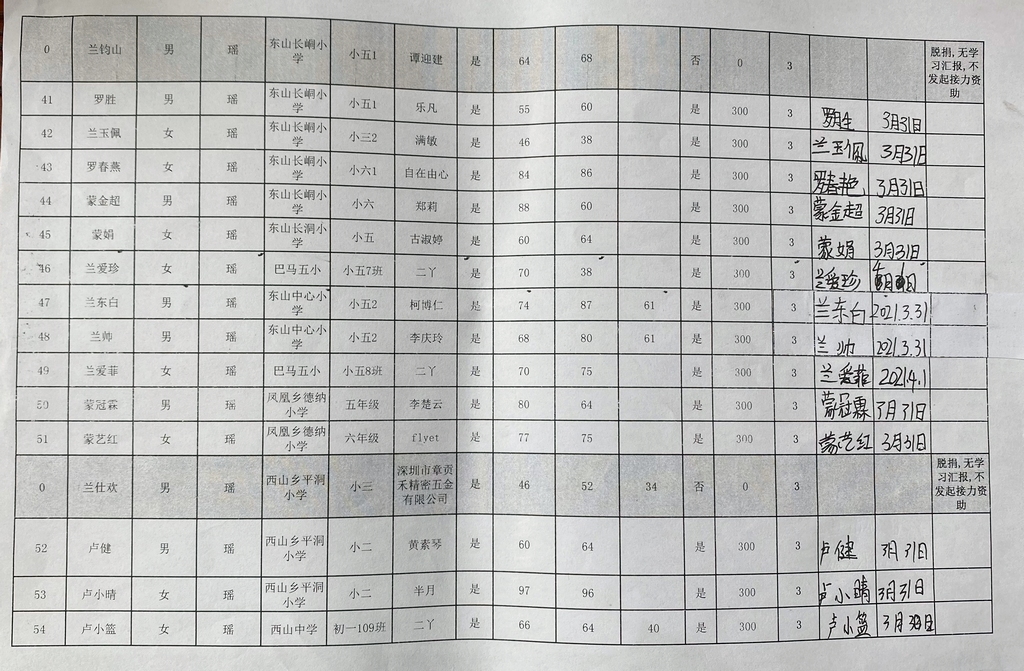 0 兰钧山 男 瑶 东山长峒小学 小五1 谭迎建 是 64 68 否 0 3 脱捐,无学习汇报,不发起接力资助
41 罗胜 男 瑶 东山长峒小学 小五1 乐凡 是 55 60 是 300 3 罗胜 3月31日
42 兰玉佩 女 瑶 东山长峒小学 小三2 满敏 是 46 38 是 300 3 兰玉佩 3月31日
43 罗春燕 女 瑶 东山长峒小学 小六1 自在由心 是 84 86 是 300 3 罗春艳 3月31日
44 蒙金超 男 瑶 东山长峒小学 小六 郑莉 是 88 60 是 300 3 蒙金超 3月31日
45 蒙娟 女 瑶 东山长洞小学 小五 古淑婷 是 60 64 是 300 3 蒙娟 3月31日
46 兰爱珍 女 瑶 巴马五小 小五7班 二丫 是 70 38 是 300 3 兰爱珍
47 兰东白 男 瑶 东山中心小学 小五2 柯博仁 是 74 87 61 是 300 3 兰东白 2021.3.31
48 兰帅 男 瑶 东山中心小学 小五2 李庆玲 是 68 80 61 是 300 3 兰帅 2021.3.31
49 兰爱菲 女 瑶 巴马五小 小五8班 二丫 是 70 75 是 300 3 兰爱菲 2021.4.1
50 蒙冠霖 男 瑶 凤凰乡德纳小学 五年级 李楚云 是 80 64 是 300 3 蒙冠霖 3月31日
51 蒙艺红 女 瑶 凤凰乡德纳小学 六年级 flyet 是 77 75 是 300 3 蒙艺红 3月31日
0 兰仕欢 男 瑶 西山乡平洞小学 小三 深圳市章贡禾精密五金有限公司 是 46 52 34 否 0 3 脱捐,无学习汇报,不发起接力资助
52 卢健 男 瑶 西山乡平洞小学 小二 黄素琴 是 60 64 是 300 3 卢健 3月31日
53 卢小晴 女 瑶 西山乡平洞小学 小二 半月 是 97 96 是 300 3 卢小晴 3月31日
54 卢小篮 女 瑶 西山中学 初一109班 二丫 是 66 64 40 是 300 3 卢小篮 3月30日